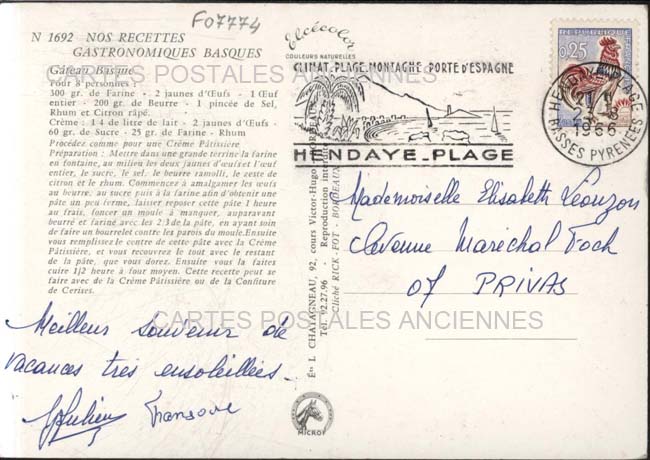 F07774
N 1692 NOS RECETTES
GASTRONOMIQUES BASQUES
Gâteau Basque
Pour 8 personnes :
300 gr. de Farine - 2 jaunes d'Œufs - 1 Œuf
entier - 200 gr. de Beurre - 1 pincée de Sel,
Rhum et Citron râpé.
Crème : 1/4 de litre de lait - 2 jaunes d'Œufs -
60 gr. de Sucre - 25 gr. de Farine - Rhum
Procédez comme pour une Crème Pâtissière
Préparation : Mettre dans une grande terrine la farine
en fontaine, au milieu les deux jaunes d'œufs et l'œuf
entier, le sucre, le sel, le beurre ramolli, le zeste de
citron et le rhum. Commencez à amalgamer les œufs
au beurre, au sucre puis à la farine afin d'obtenir une
pâte un peu ferme, laisser reposer cette pâte 1 heure
au frais, foncer un moule à manquer, auparavant
beurré et fariné avec les 2/3 de la pâte, en ayant soin
de faire un bourrelet contre les parois du moule. Ensuite
vous remplissez le centre de cette pâte avec la Crème
Pâtissière, et vous recouvrez le tout avec le restant
de la pâte, que vous dorez. Ensuite vous la faites
cuire 1/2 heure à four moyen. Cette recette peut se
faire avec de la Crème Pâtissière ou de la Confiture
de Cerises.
Meilleur souvenir de
vacances très ensoleillées.
Elcécolor
COULEURS NATURELLES
CLIMAT.PLAGE.MONTAGNE.PORTE D'ESPAGNE
HENDAYE_PLAGE
0,25
HENDAYE PLAGE
1966
BASSES PYRENEES
Éts L. CHATAGNEAU, 92, cours Victor-Hugo, BORDEAUX
Tél. 92.27.96 - Reproduction interdite
Cliché RICK FOT - BORDEAUX
MICROF
Mademoiselle Elisabeth Leouzon
Avenue Maréchal Foch
07 PRIVAS
CARTES POSTALES ANCIENNES
CARTES POSTALES ANCIENNES